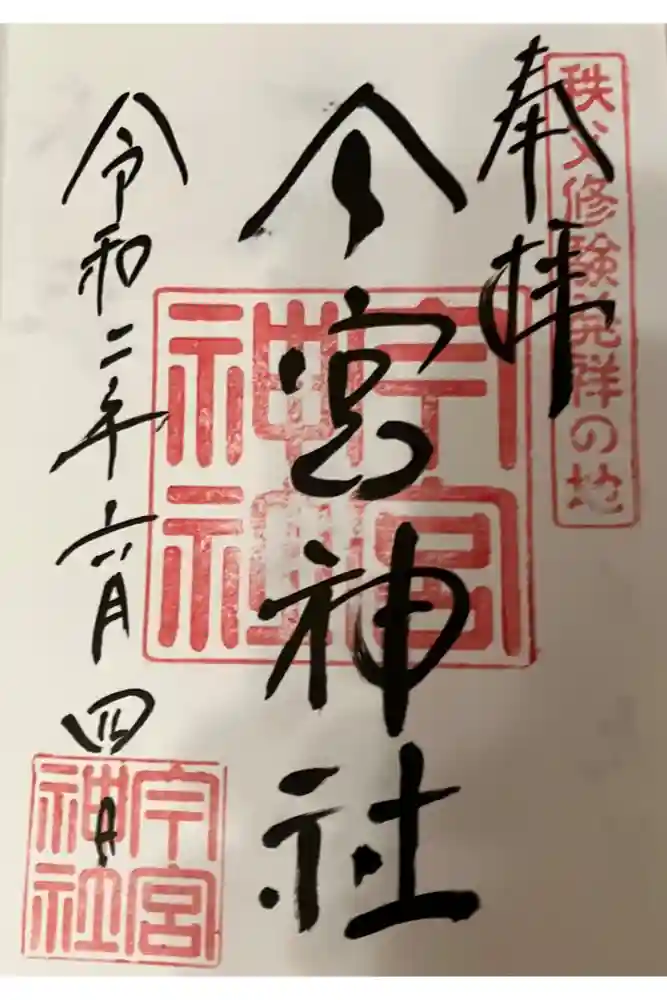 秩父修験発祥の地
奉拝
今宮神社
令和二年六月四日
今宮
神社